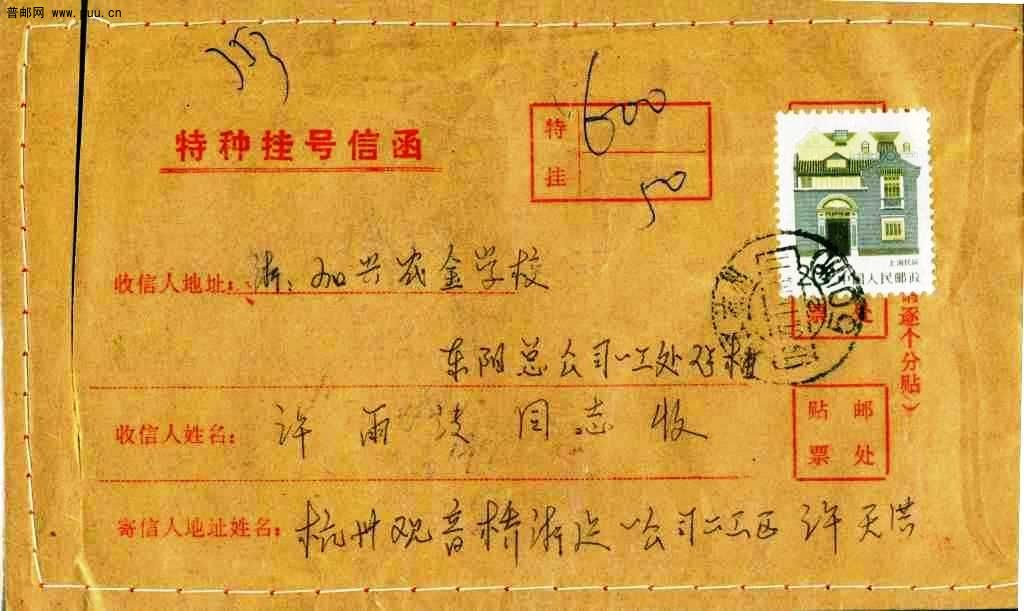 普邮网 www.puu.cn
353
特种挂号信函
特
挂
600
50
上海民居
20
中国人民邮政
收信人地址：浙：加兴农金学校
东阳总公司一工处
票 处
请逐个分贴）
收信人姓名：许雨凌同志收
贴 邮
票 处
寄信人地址姓名：杭州观音桥浙建一公司二工区 许天洪